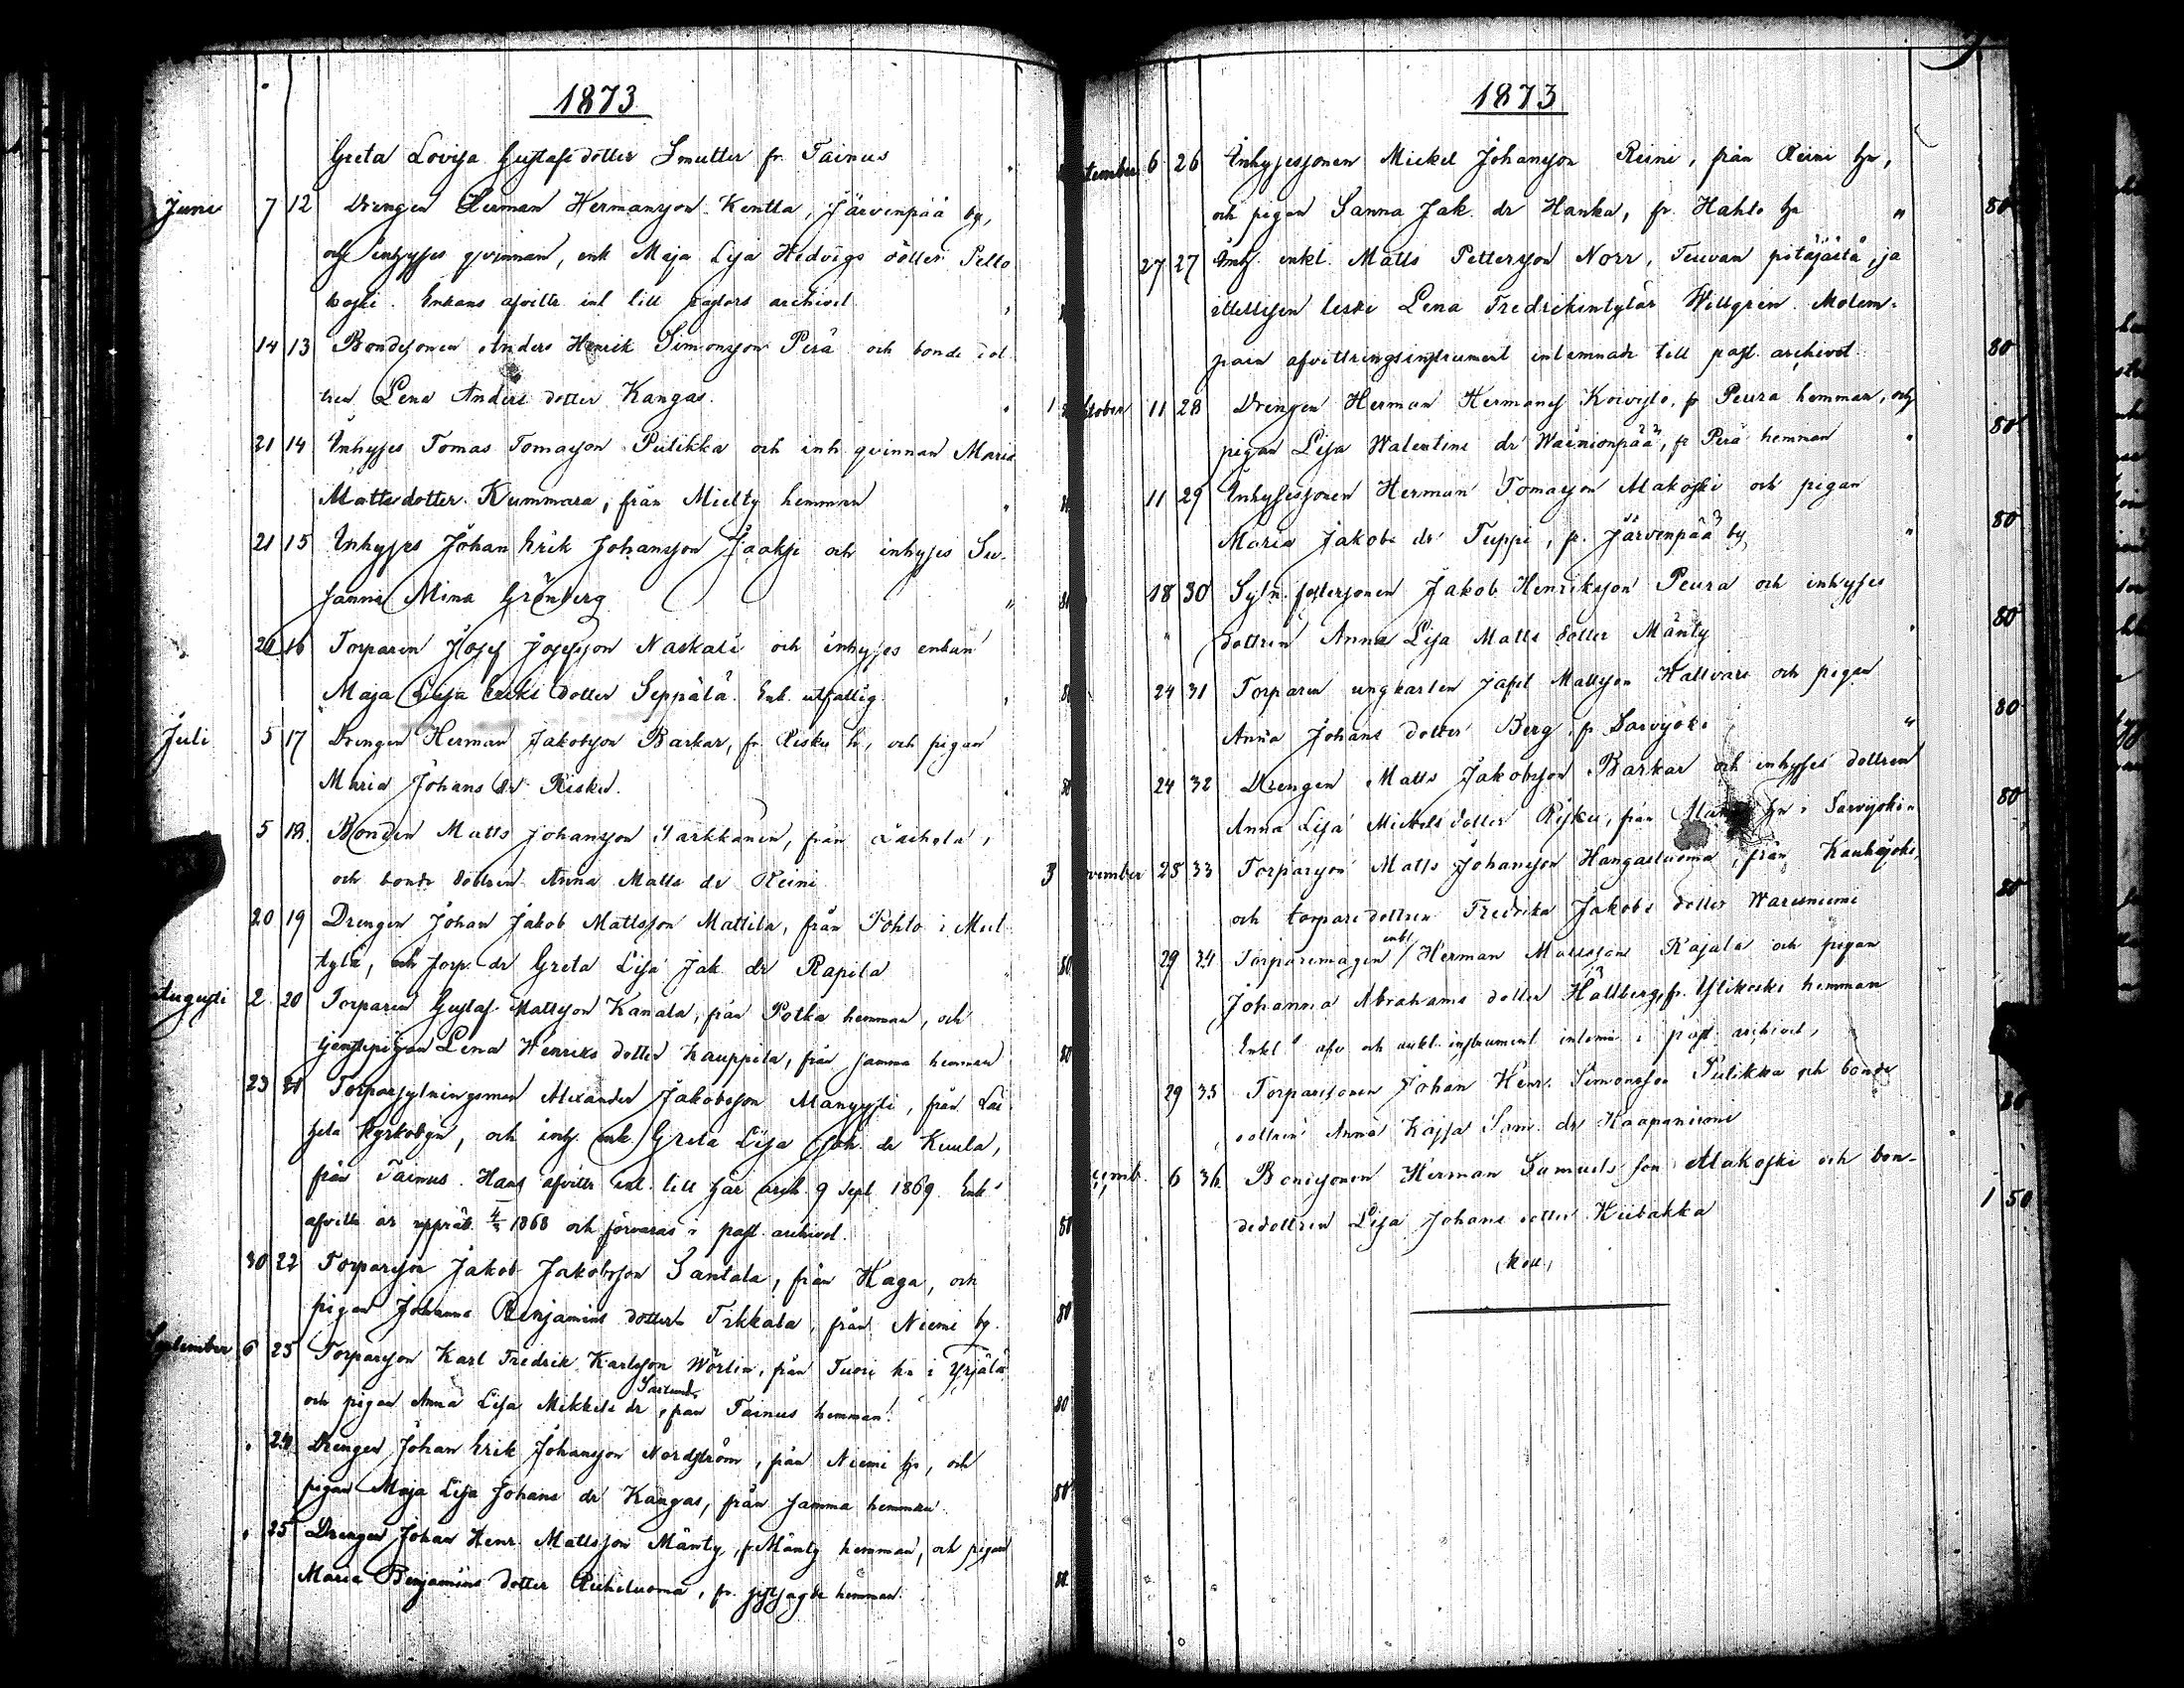 1873
Greta Lovisa Gustafsdotter Smutter fr. Tainus
Juni 7 12 Drengen Herman Hermansson Kentta, Järvenpää by,
och inhyses qvinnan, enk Maja Lisa Hedvigs dotter Pelto
koski. Enkans afvittr. inl. till pastors archivet 80
14 13 Bondesonen Anders Henrik Simonsson Perä och bonde dot
tren Lena Anders dotter Kangas. 1
21 14 Inhyses Tomas Tomasson Pulikka och inh. qvinnan Maria
Mattsdotter Kummara, från Mielty hemman 80
21 15 Inhyses Johan Erik Johansson Jaakse och inhyses Su-
sanna Mina Grönberg " 80
26 16 Torparen Josef Josefsson Naskali och inhyses enkan
Maja Lisa Eriks dotter Seppälä. Enk. utfattig 80
Juli 5 17 Drengen Herman Jakobsson Barkar, fr. Risku h., och pigan
Maria Johans dr Risku. 80
5 18 Bonden Matts Johansson Sarkkanen, från Laihela,
och bonde dottren Anna Matts dr Reini 3
20 19 Drengen Johan Jakob Mattsson Mattila, från Pohto i Miel
tylä, och torp. dr Greta Lisa Jak. dr Rapila 80
Augusti 2 20 Torparen Gustaf Mattsson Kanala, från Potka hemman, och
tjenstepigan Lena Henriks dotter Kauppila, från samma hemman 80
23 21 Torparsytningsman Alexander Jakobsson Mansysti, från Lai
hela kyrkobyn, och inhy. enk. Greta Lisa Joh. dr Kuula,
från Tainus. Hans afvittr. inl. till här. arch. 9 Sept 1869. Enk
afvittr. är upprätt. 1868 och förvaras i past. archivet. 80
30 22 Torparson Jakob Jakobsson Santala, från Haga, och
pigan Johanna Benjamins dotter Tikkala, från Niemi by. 80
September 6 23 Torparson Karl Fredrik Karlsson Wörlin, från Tuori hn i Yrjälä
Saxlund
och pigan Anna Lisa Mikkels dr, från Tainus hemman. 80
" 24 Drengen Johan Erik Johansson Nordström, från Niemi hn, och
pigan Maja Lisa Johans dr Kangas, från samma hemman. 80
" 25 Drengen Johan Henr. Mattsson Mänty, fr Mänty hemman, och pigan
Maria Benjamins dotter Riiheluoma, fr. sistsagde hemman. 80
1873
tember 6 26 Inhysessonen Mickel Johansson Reini, från Reini hn,
och pigan Sanna Jak. dr Hanka, fr. Hahto hn " 80
27 27 Inh. enkl. Matts Pettersson Norr, Teuvan pitäjästä, ja
ittellisen leski Lena Fredrikintytär Wellgrén. Molem-
pain afvittringsinstrument inlemnade till past. archivet. 80
ktober 11 28 Drengen Herman Hermans Koivisto, fr Peura hemman, och
pigan Lisa Walentins dr Wainionpää, fr Perä hemman " 80
11 29 Inhysessonen Herman Tomasson Alakoski och pigan
Maria Jakobs dr Tuppi, fr. Järvenpää by " 80
18 30 Sytn. fostersonen Jakob Henriksson Peura och inhyses
dottren Anna Lisa Matts dotter Mänty " 80
24 31 Torparen ungkarlen Jafet Mattsson Hallvari och pigan
Anna Johans dotter Berg, fr Sarvijoki " 80
24 32 Drengen Matts Jakobsson Barkar och inhyses dottren
Anna Lisa Mickels dotter Risku, från hn i Sarvijoki 80
vember 25 33 Torparson Matts Johansson Hangasluoma, från Kauhajoki,
och torparedottren Fredrika Jakobs dotter Warisniemi 80
enkl
29 34 Torparemågen / Herman Mattsson Rajala och pigan
Johanna Abrahams dotter Hallberg, fr. Ylikoski hemman
Enkl afv. och enkl. instrument inlemn. i past. archivet,
29 35 Torparsonen Johan Henr. Simonsson Pulikka och bonde
dottren Anna Kajsa Sam. dr Haapaniemi 80
cemb. 6 36 Bondsonen Herman Samuels son Alakoski och bon-
dedottren Lisa Johans dotter Kiibakka 1 50